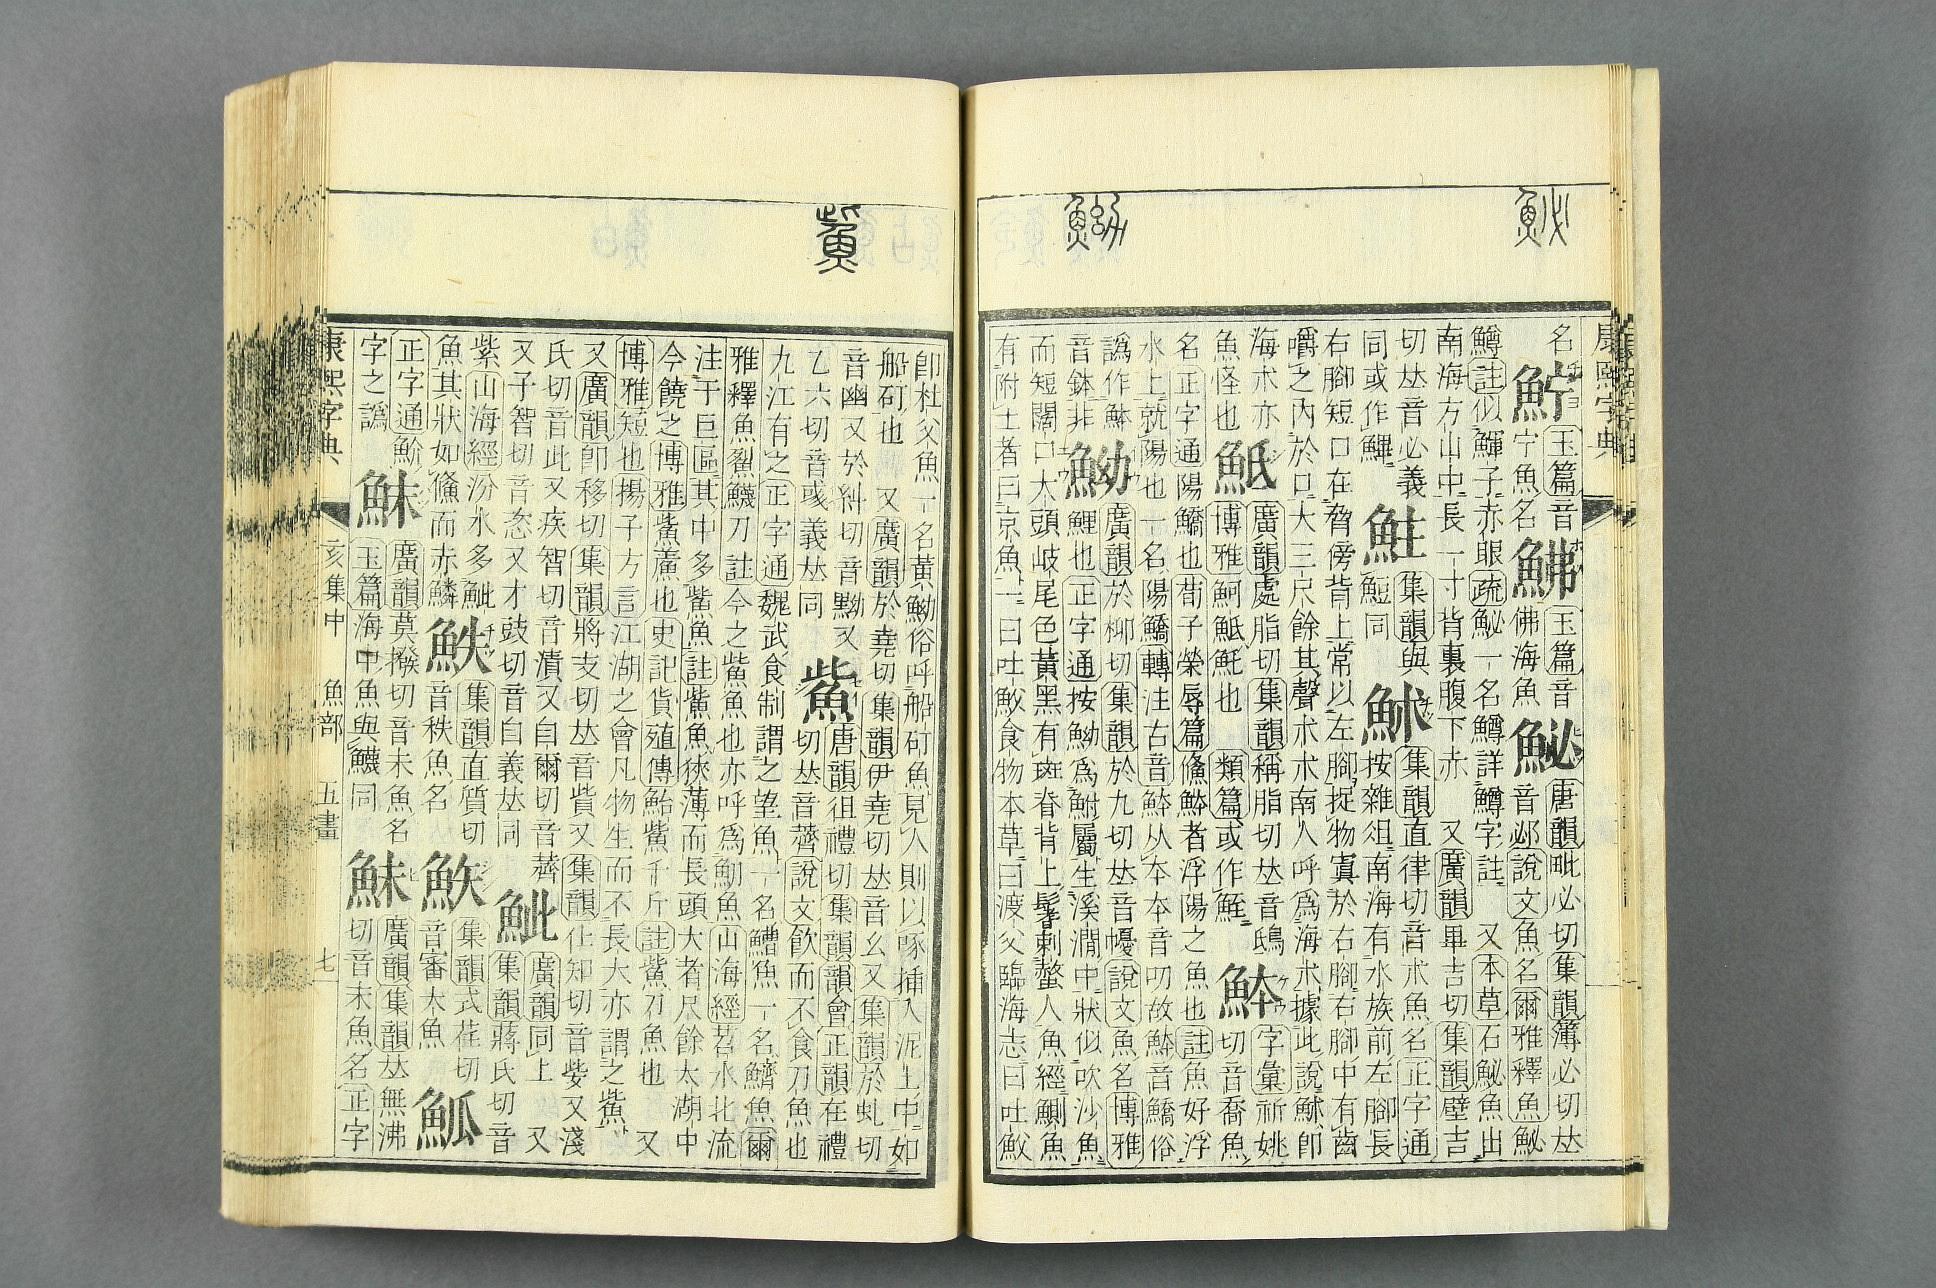 康熙字典
名
玉篇音
宁魚名
鮄
玉篇音
佛海魚
鮅
唐韻毗必切集韻簿必切𠀤
音邲說文魚名爾雅釋魚鮅
鱒註似鯶子赤眼疏鮅一名鱒詳鱒字註 又本草石鮅魚出
南海方山中長一寸背裏腹下赤 又廣韻畢吉切集韻壁吉
切𠀤音必義
同或作
集韻與
同
集韻直律切音朮魚名正字通
按雜俎南海有水族前左腳長
右腳短口在脅傍背上常以左腳捉物寘於右腳右腳中有齒
嚼之內於口大三尺餘其聲朮朮南人呼爲海朮據此說 卽
海朮亦
魚怪也
䱃
廣韻處脂切集韻稱脂切𠀤音鴟
博雅魺䱃魠也 類篇或作
字彙祈姚
切音喬魚
名正字通陽鱎也荀子榮辱篇鯈䱁者浮陽之魚也註魚好浮
水上就陽也一名陽鱎轉注古音䱁从本本音叨故䱁音鱎俗
譌作鉢
音鉢非
䱂
廣韻於柳切集韻於九切𠀤音懮說文魚名博雅
鯉也正字通按䱂爲鮒屬生溪澗中狀似吹沙魚
而短闊口大頭岐尾色黃黑有斑脊背上鬐刺螫人魚經鰂魚
有附土者曰京魚一曰吐䰻食物本草曰渡父臨海志曰吐䰻
卽杜父魚一名黃䱂俗呼船矴魚見人則以喙插入泥土中如
船矴也 又廣韻於堯切集韻伊堯切𠀤音幺又集韻於虬切
音幽又於糾切音黝又
乙六切音彧義𠀤同
鮆
唐韻徂禮切集韻韻會正韻在禮
切𠀤音薺說文飮而不食刀魚也
九江有之正字通魏武食制謂之望魚一名䲃魚一名鱭魚爾
雅釋魚鮤鱴刀註今之鮆魚也亦呼爲魛魚山海經苕水北流
注于巨區其中多鮆魚註鮆魚狹薄而長頭大者尺餘太湖中
今饒之博雅鮆鱭也史記貨殖傳鮐鮆千斤註鮆刀魚也 又
博雅短也揚子方言江湖之會凡物生而不長大亦謂之鮆 
又廣韻卽移切集韻將支切𠀤音貲又集韻仳知切音姕又淺
氏切音此又疾智切音漬又自爾切音薺 又
又子智切音恣又才豉切音自義𠀤同
𩶆
廣韻同上
集韻蔣氏切音
紫山海經汾水多𩶆
魚其狀如鯈而赤鱗
䱃
集韻直質切
音秩魚名
集韻式荏切
音審大魚
正字通魪
字之譌
玉篇海中
魚與鱴同
廣韻莫撥切音末魚名
鮇
廣韻集韻𠀤無沸
切音未魚名正字
康熙字典
亥集中
魚部
五畫
七